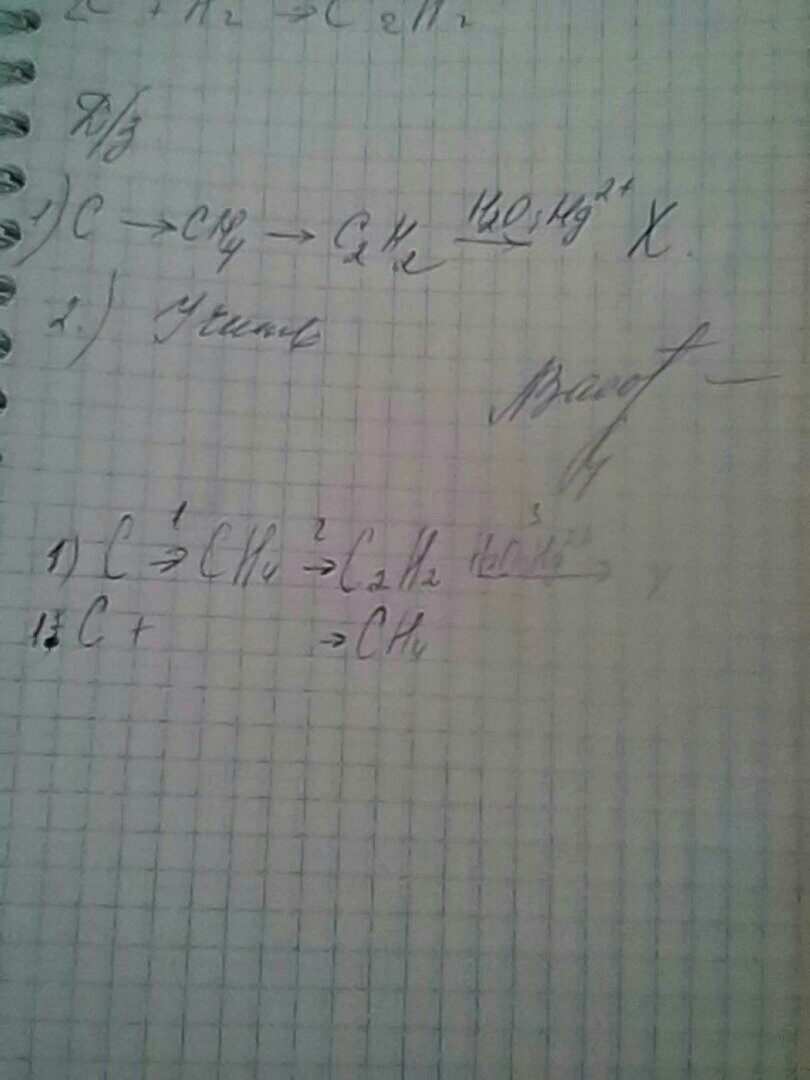 2C + H₂ → C₂H₂
Д/з
1) C → CH₄ → C₂H₂ H₂O; Hg²⁺→ X.
2.) Учить
1) C 1→ CH₄ 2→ C₂H₂ H₂O; Hg²⁺ 3→
1: C + → CH₄